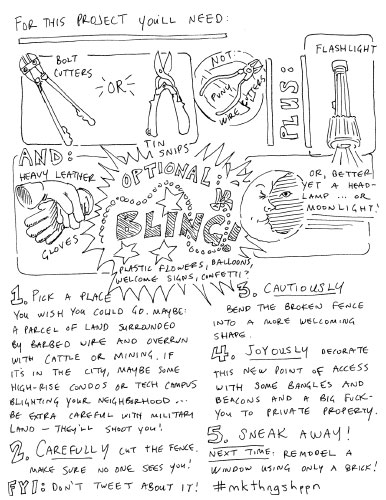 FOR THIS PROJECT YOU'LL NEED:
BOLT
CUTTERS
OR
TIN
SNIPS
NOT:
PUNY
WIRE CUTTERS
PLUS:
FLASHLIGHT
AND:
HEAVY LEATHER
GLOVES
OPTIONAL:
BLING!
PLASTIC FLOWERS, BALLOONS,
WELCOME SIGNS, CONFETTI?
OR, BETTER
YET A HEAD-
LAMP ... OR
MOONLIGHT!
1. PICK A PLACE
YOU WISH YOU COULD GO. MAYBE:
A PARCEL OF LAND SURROUNDED
BY BARBED WIRE AND OVERRUN
WITH CATTLE OR MINING. IF
IT'S IN THE CITY, MAYBE SOME
HIGH-RISE CONDOS OR TECH CAMPUS
BLIGHTING YOUR NEIGHBORHOOD...
BE EXTRA CAREFUL WITH MILITARY
LAND – THEY'LL SHOOT YOU!
2. CAREFULLY CUT THE FENCE.
MAKE SURE NO ONE SEES YOU!
FYI: DON'T TWEET ABOUT IT!
3. CAUTIOUSLY
BEND THE BROKEN FENCE
INTO A MORE WELCOMING
SHAPE.
4. JOYOUSLY DECORATE
THIS NEW POINT OF ACCESS
WITH SOME BANGLES AND
BEACONS AND A BIG FUCK-
YOU TO PRIVATE PROPERTY.
5. SNEAK AWAY!
NEXT TIME: REMODEL A
WINDOW USING ONLY A BRICK!
#mkthngshppn